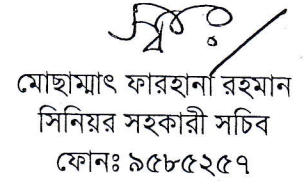 স্বাঃ
মোছাম্মাৎ ফারহানা রহমান
সিনিয়র সহকারী সচিব
ফোনঃ ৯৫৮৫২৫৭